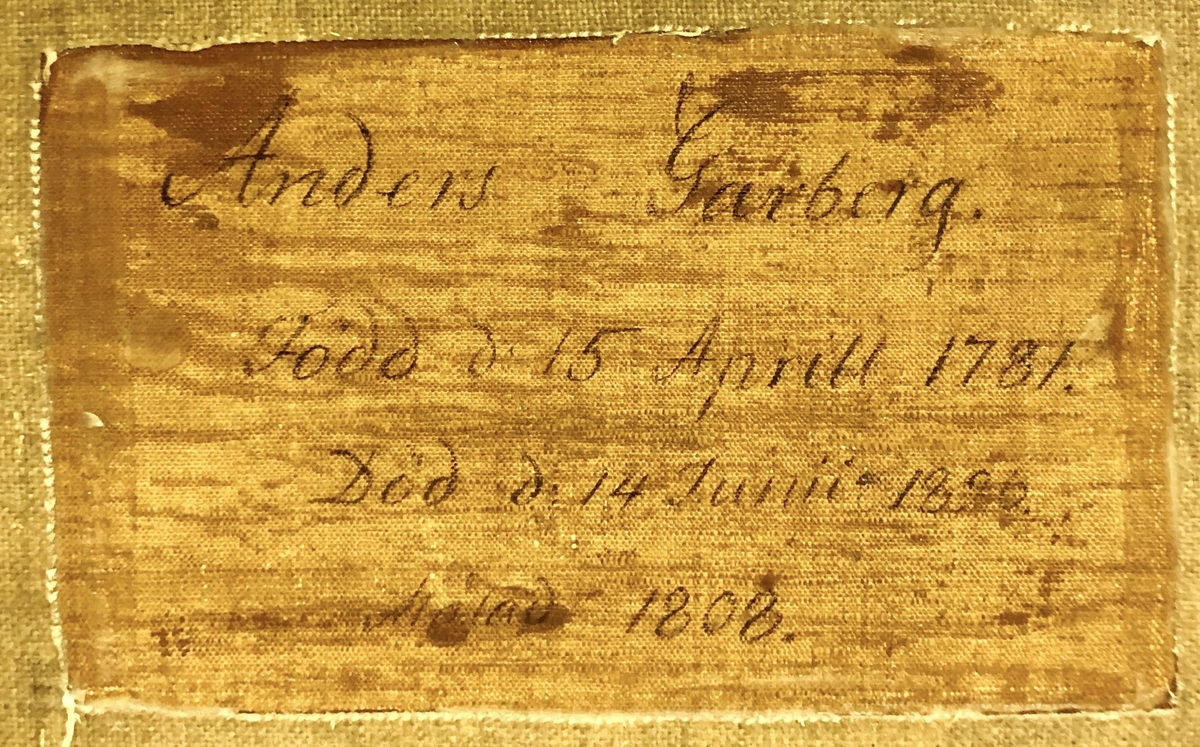 Anders Garberg.
Född d: 15 Aprill 1781.
Död d: 14 Junii
Målad 1808.